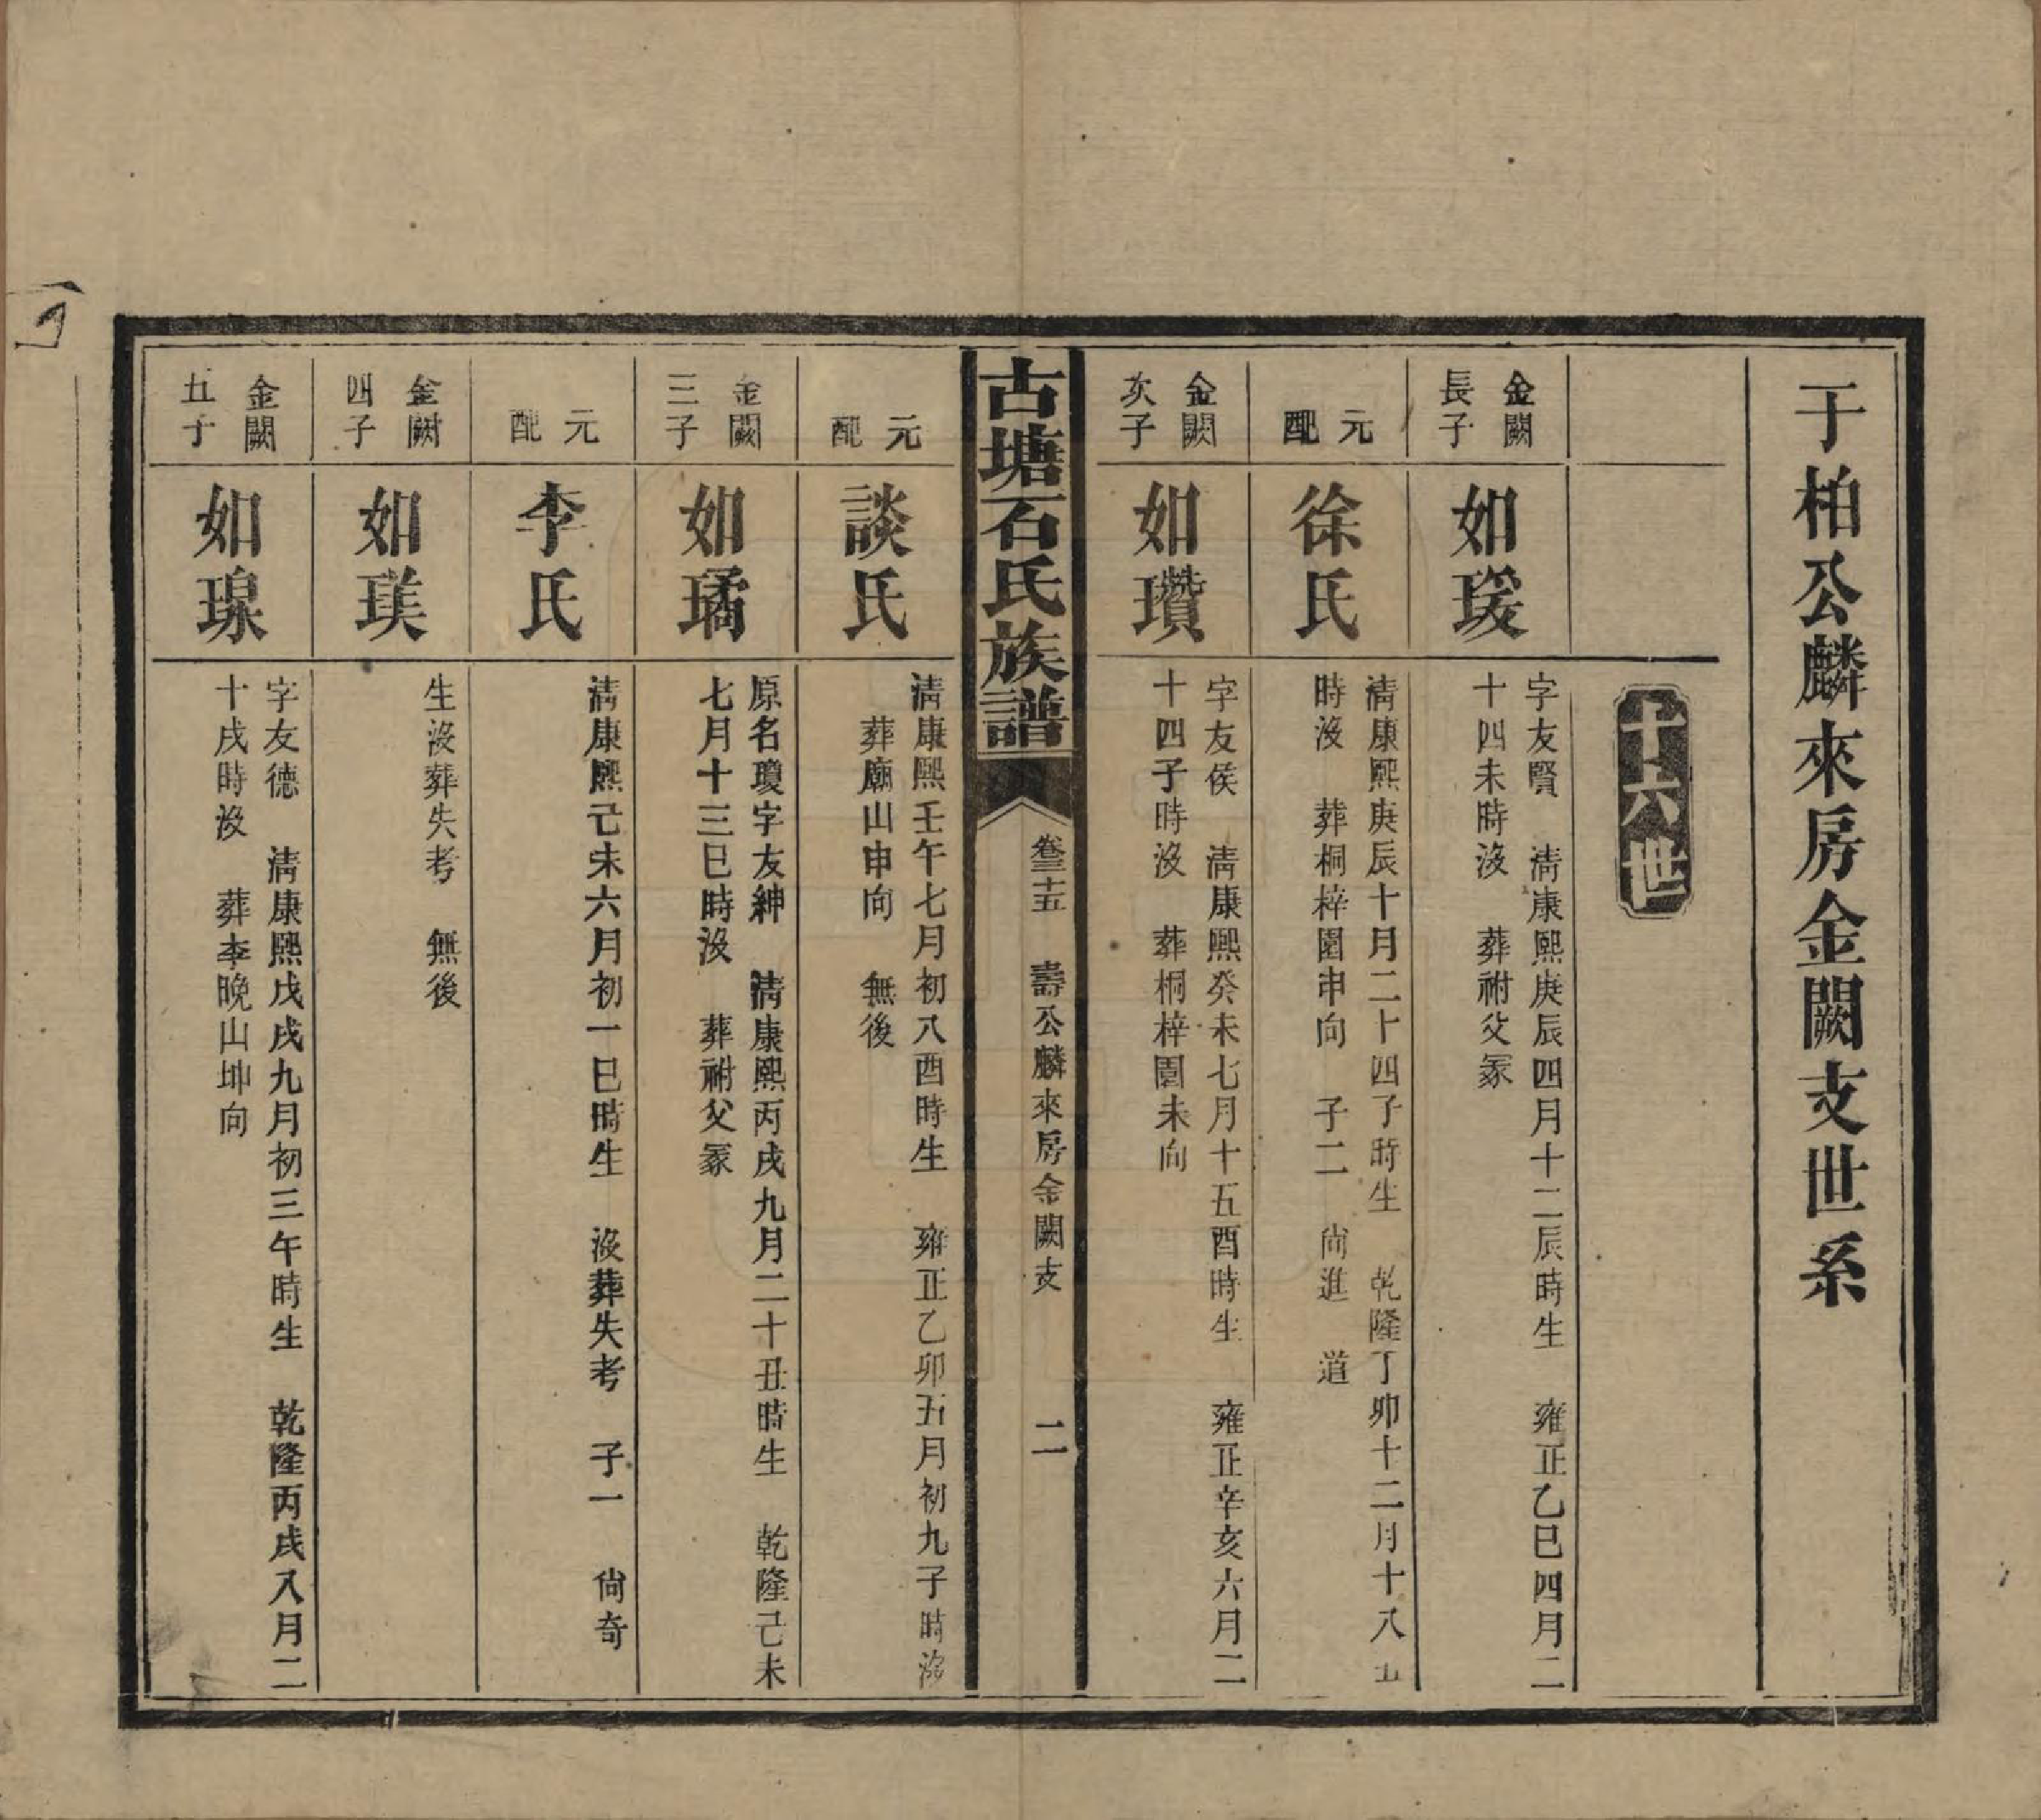 于柏公麟來房金闕支世系
十六世
金闕
長子
如瑗
字友賢　清康熙庚辰四月十二辰時生　雍正乙巳四月二
十四未時沒　葬祔父冢
元
配
徐氏
清康熙庚辰十月二十四子時生　乾隆丁卯十二月十八五
時沒　葬桐梓園申向　子二　尙進　道
金闕
次子
如瓚
字友侯　清康熙癸未七月十五酉時生　雍正辛亥六月二
十四子時沒　葬桐梓園未向
古塘石氏族譜
卷三十五　壽公麟來房金闕支　二
元
配
談氏
清康熙壬午七月初八酉時生　雍正乙卯五月初九子時沒
葬廟山申向　無後
金闕
三子
如璚
原名瓊字友紳　清康熙丙戌九月二十丑時生　乾隆己未
七月十三巳時沒　葬祔父冢
元
配
李氏
清康熙己未六月初一巳時生　沒葬失考　子一　尙奇
金闕
四子
如瑛
生沒葬失考　無後
金闕
五子
如瑔
字友德　清康熙戊戌九月初三午時生　乾隆丙戌八月二
十戌時沒　葬李晚山坤向